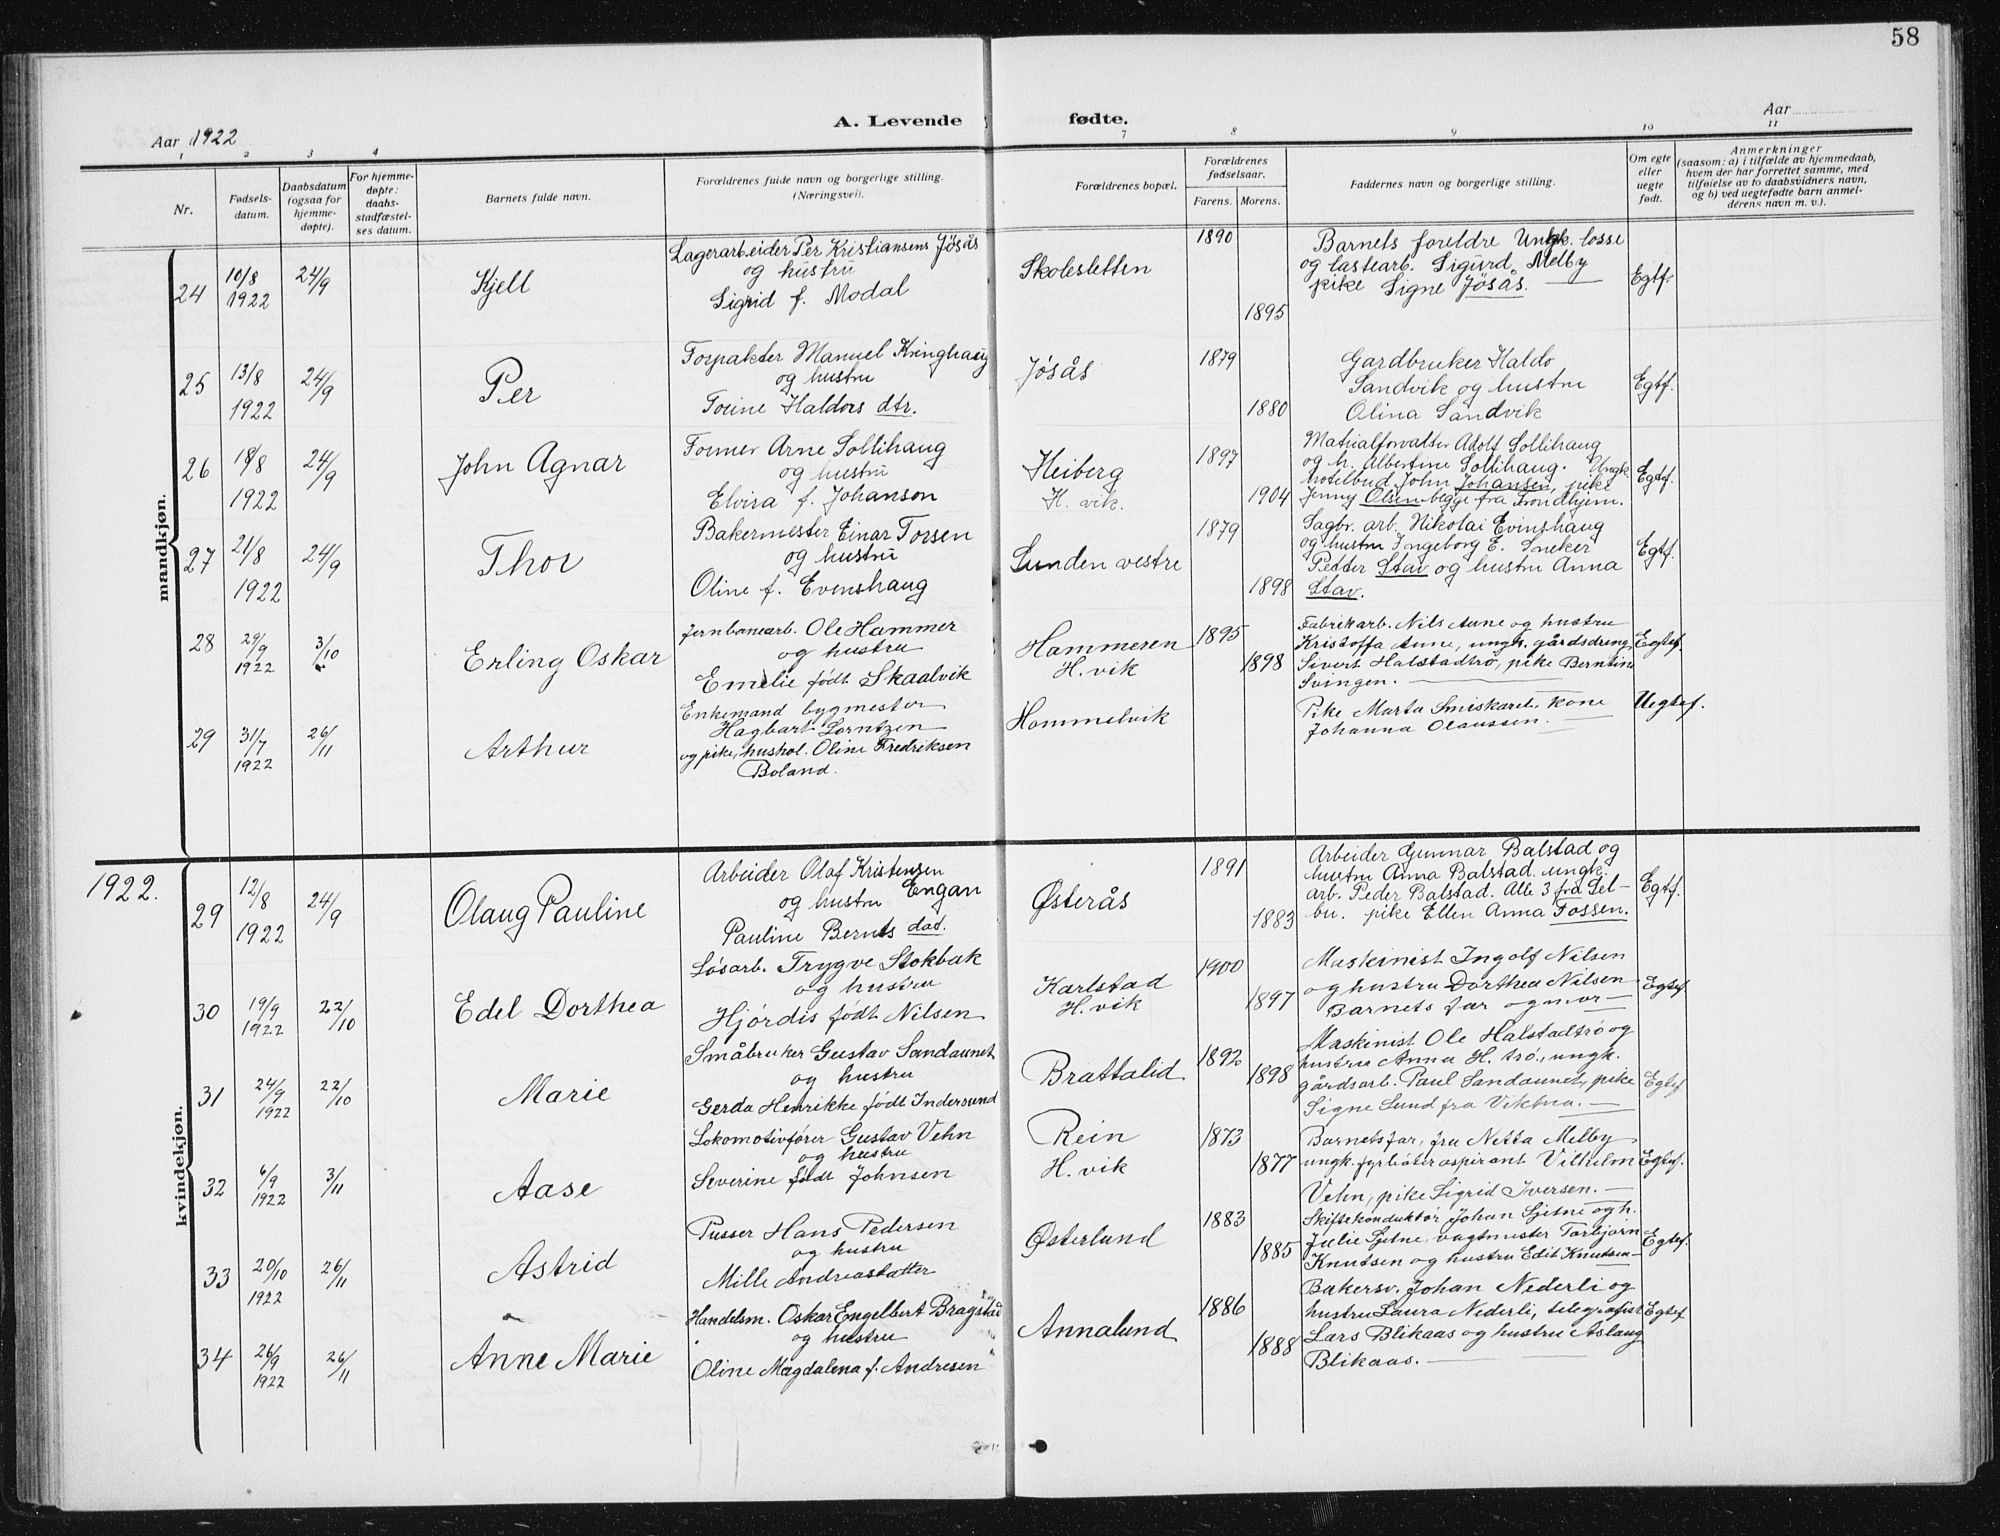 58
Aar 1922
A. Levende fødte.
Aar
1 2 3 4 7 8 9 10 11
Nr.
Fødsels-
datum.
Daabsdatum
(ogsaa for
hjemme-
døpte).
For hjemme-
døpte:
daabs-
stadfæstel-
ses datum.
Barnets fulde navn.
Forældrenes fulde navn og borgerlige stilling.
(Næringsvei).
Forældrenes bopæl.
Forældrenes
fødselsaar.
Farens. Morens.
Faddernes navn og borgerlige stilling.
Om egte
eller
uegte
født.
Anmerkninger
(saasom: a) i tilfælde av hjemmedaab,
hvem der har forrettet samme, med
tilføielse av to daabsvidners navn,
og b) ved uegtefødte barn anmel-
derens navn m. v.).
mandkjøn.
24
10/8
1922
24/9
Kjell
Lagerarbeider Per Kristiansens Jøsås
og hustru
Sigrid f. Modal
Skolesletten
1890
1895
Barnets foreldre Ungk. losse
og lastearb. Sigurd Melby
pike Signe Jøsås.
Egtf.
25
13/8
1922
24/9
Per
Forpakter Manuel Kringhaug
og hustru
Torine Haldors dtr.
Jøsås
1879
1880
Gardbruker Haldo
Sandvik og hustru
Olina Sandvik
Egtf.
26
18/8
1922
24/9
John Agnar
Former Arne Sollihaug
og hustru
Elvira f. Johanson
Heiberg
H. vik.
1897
1904
Matrialforvalter Adolf Sollihaug
og h. Albertine Sollihaug. Ungk.
hotelbud John Johansen, pike
Jenny Olsen begge fra Trondhjem.
Egtf.
27
21/8
1922
24/9
Thor
Bakermester Einar Torsen
og hustru
Oline f. Evenshaug
Sunden vestre
1879
1898
Sagbr. arb. Nikolai Evinshaug
og hustru Ingeborg E. Sneker
Petter Stav og hustru Anna
Stav.
Egtf.
28
29/9
1922
3/10
Erling Oskar
Jernbanearb. Ole Hammer
og hustru
Emelie født Skaalvik
Hammeren
H. vik
1895
1898
Fabrikarb. Nils Aune og hustru
Kristoffa Aune, ungk. gårdsdreng
Sivert Halstadtrø, pike Berntine
Svingen.
Egtef.
29
31/7
1922
26/11
Arthur
Enkemand bygmester
Hagbart Lorntzen
og pike, hushol. Oline Fredriksen
Boland.
Hommelvik
Pike Marta Smiskaret, kone
Johanna Olaussen.
Uegtef.
1922.
kvindekjøn.
29
12/8
1922
24/9
Olaug Pauline
Arbeider Olaf Kristensen
og hustru Engan
Pauline Bernts dat.
Østerås
1891
1883
Arbeider Gunnar Balstad og
hustru Anna Balstad. ungk.
arb. Peder Balstad. Alle 3 fra Sel-
bu. pike Ellen Anna Fossen.
Egtf.
30
19/9
1922
22/10
Edel Dorthea
Løsarb. Trygve Stokbak
og hustru
Hjørdis født Nilsen
Karlstad
H. vik
1900
1897
Maskinist Ingolf Nilsen
og hustru Dorthea Nilsen
Barnets far og mor
Egtef.
31
24/9
1922
22/10
Marie
Småbruker Gustav Sandaunet
og hustru
Gerda Henrikke født Indersund
Brattalid
1892
1898
Maskinist Ole Halstadtrø og
hustru Anna H. trø, ungk.
gårdsarb. Paul Sandaunet, pike
Signe Lund fra Viktna.
Egtef
32
6/9
1922
3/11
Aase
Lokomotivfører Gustav Vehn
og hustru
Severine født Johnsen
Rein
H. vik
1873
1877
Barnets far, fru Netta Melby
ungk. fyrbøteraspirant Vilhelm
Vehn, pike Sigrid Iversen.
Egtef.
33
20/10
1922
26/11
Astrid
Pusser Hans Pedersen
og hustru
Mille Andreasdatter
Østerlund
1883
1885
Skiftekonduktør Johan Sjetne og h.
Julie Sjetne, vagtmester Torbjørn
Knutsen og hustru Edit Knutsen
Egtef.
34
26/9
1922
26/11
Anne Marie
Handelsm. Oskar Engelbert Bragstad
og hustru
Oline Magdalena f. Andresen
Annalund
1886
1888
Bakersv. Johan Nederli og
hustru Laura Nederli, telegrafist
Lars Blikaas og hustru Aslaug
Blikaas.
Egtef